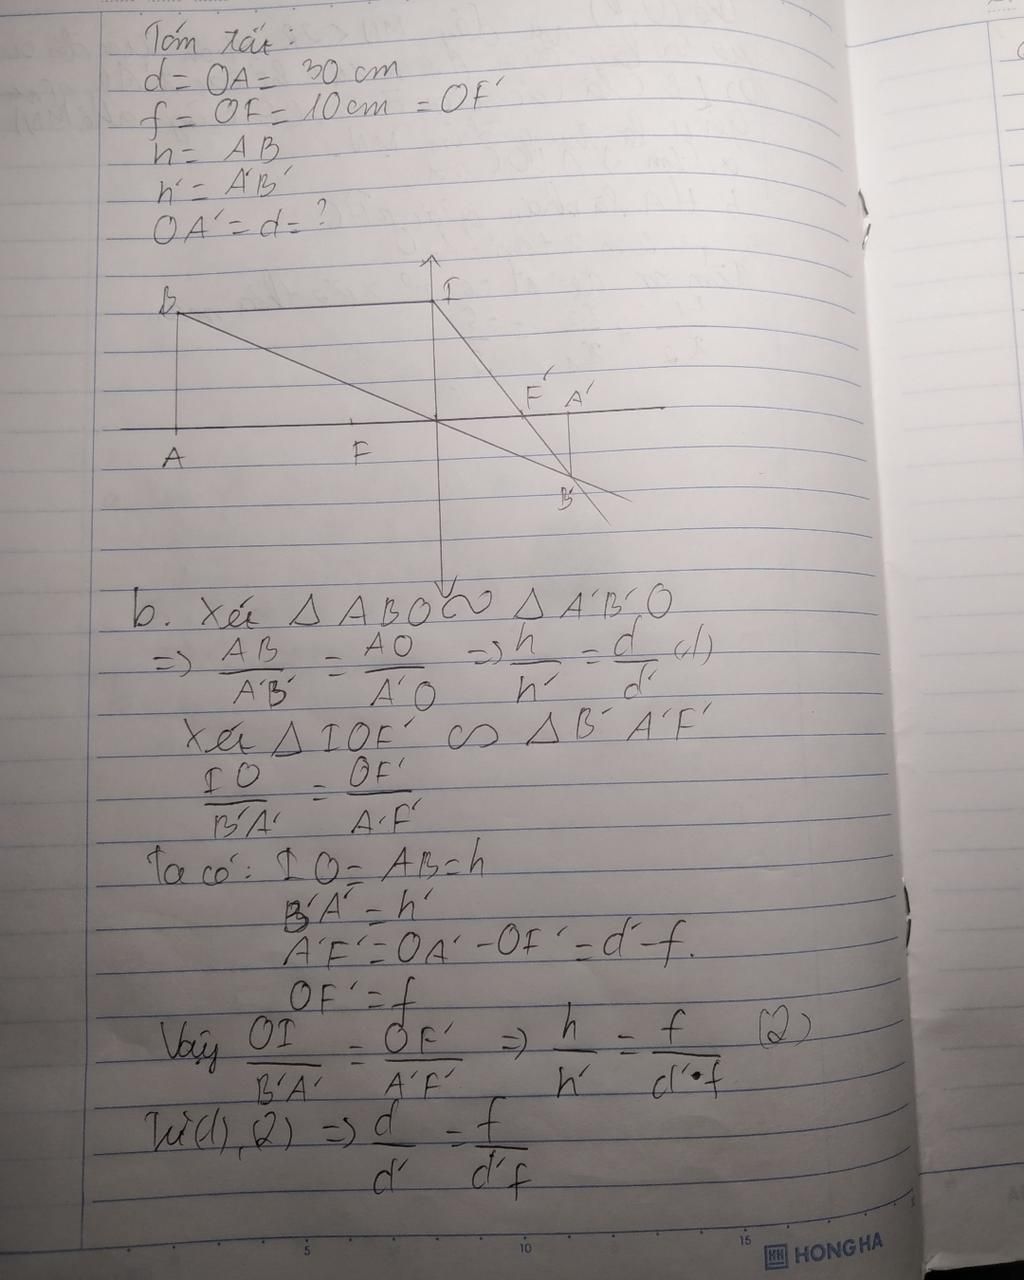 Tóm tắt:
d = OA = 30 cm
f = OF = 10 cm = OF'
h = AB
h' = A'B'
OA' = d = ?
B I
F' A'
A F
B'
b. Xét Δ ABO ∽ Δ A'B'O
=> AB/A'B' = AO/A'O => h/h' = d/d' (1)
Xét Δ IOF' ∽ Δ B'A'F'
IO/B'A' = OF'/A'F'
Ta có: IO = AB = h
B'A' = h'
A'F' = OA' - OF' = d' - f.
OF' = f
Vậy OI/B'A' = OF'/A'F' => h/h' = f/d'•f (2)
Từ (1), (2) => d/d' = f/d'f
5 10 15
HH HONG HA